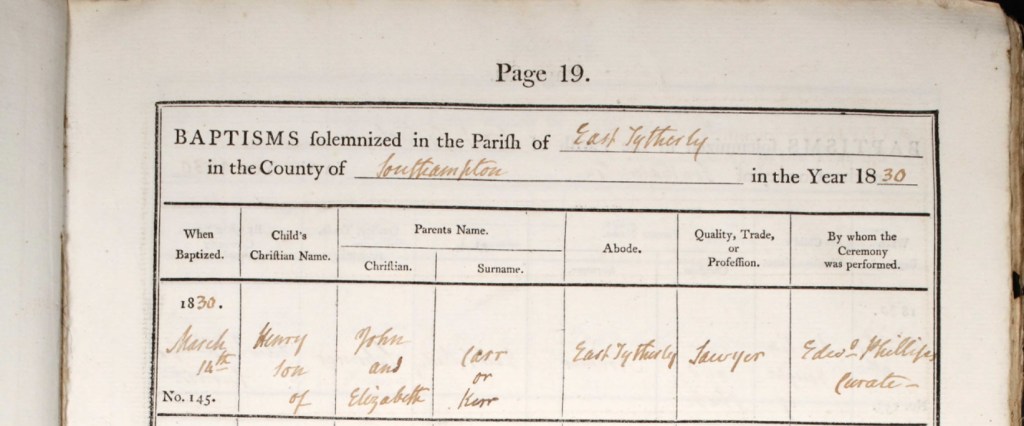 Page 19.
BAPTISMS ſolemnized in the Pariſh of East Tytherly
in the County of Southampton in the Year 1830
When
Baptized.
Child's
Chriſtian Name.
Parents Name.
Chriſtian.
Surname.
Abode.
Quality, Trade,
or
Profeſſion.
By whom the
Ceremony
was performed.
1830.
March
14th
No. 145.
Henry
son
of
John
and
Elizabeth
Carr
or
Kerr
East Tytherly
Sawyer
Edwd. Phillips
Curate